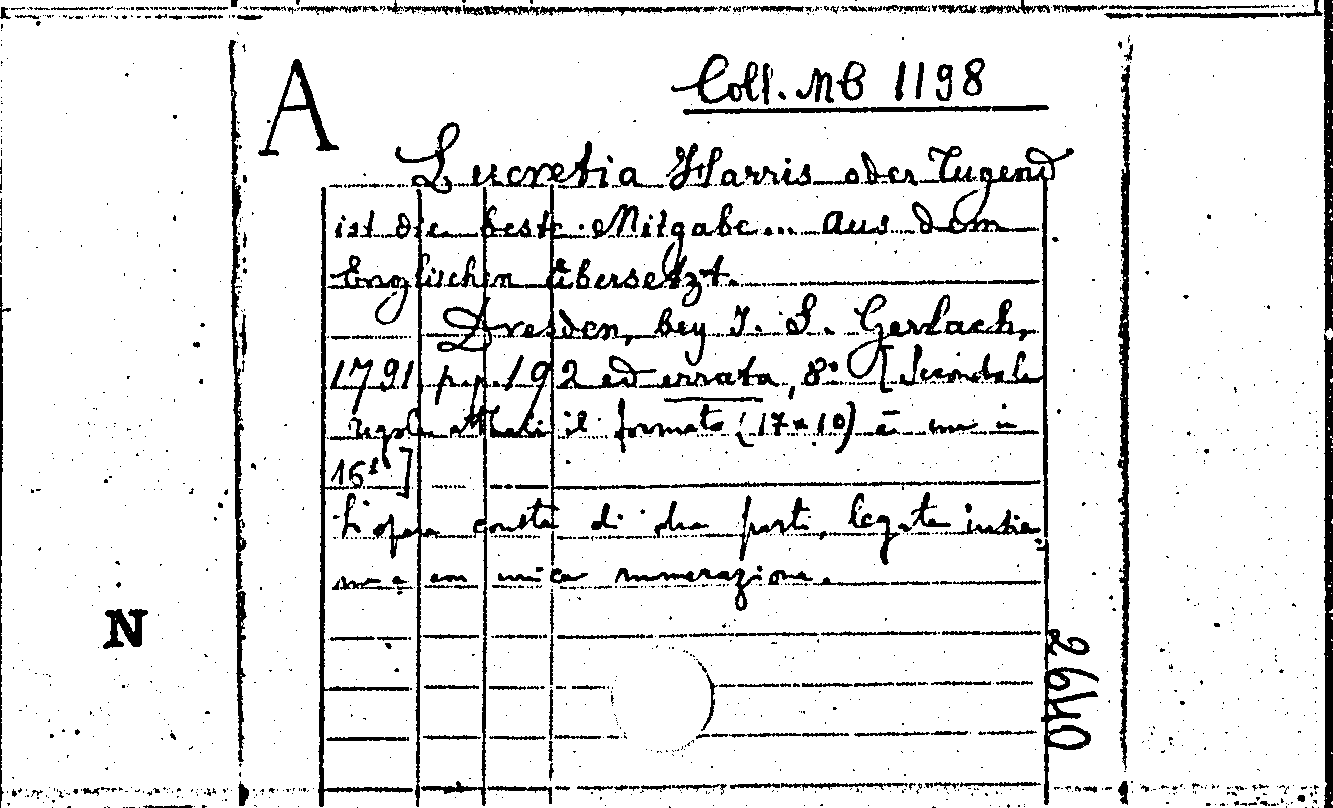 A
Coll. MB 1198
Lucretia Harris oder Tugend
ist die beste Mitgabe... Aus dem
Englischen übersetzt.
Dresden, bey I. S. Gerlach,
1791 pp. 192 ed errata, 8° [Secondo le
regole attuali il formato (17x10) è in
16°]
L'opera consta di due parti, legate insie=
me e con unica numerazione.
N
2640